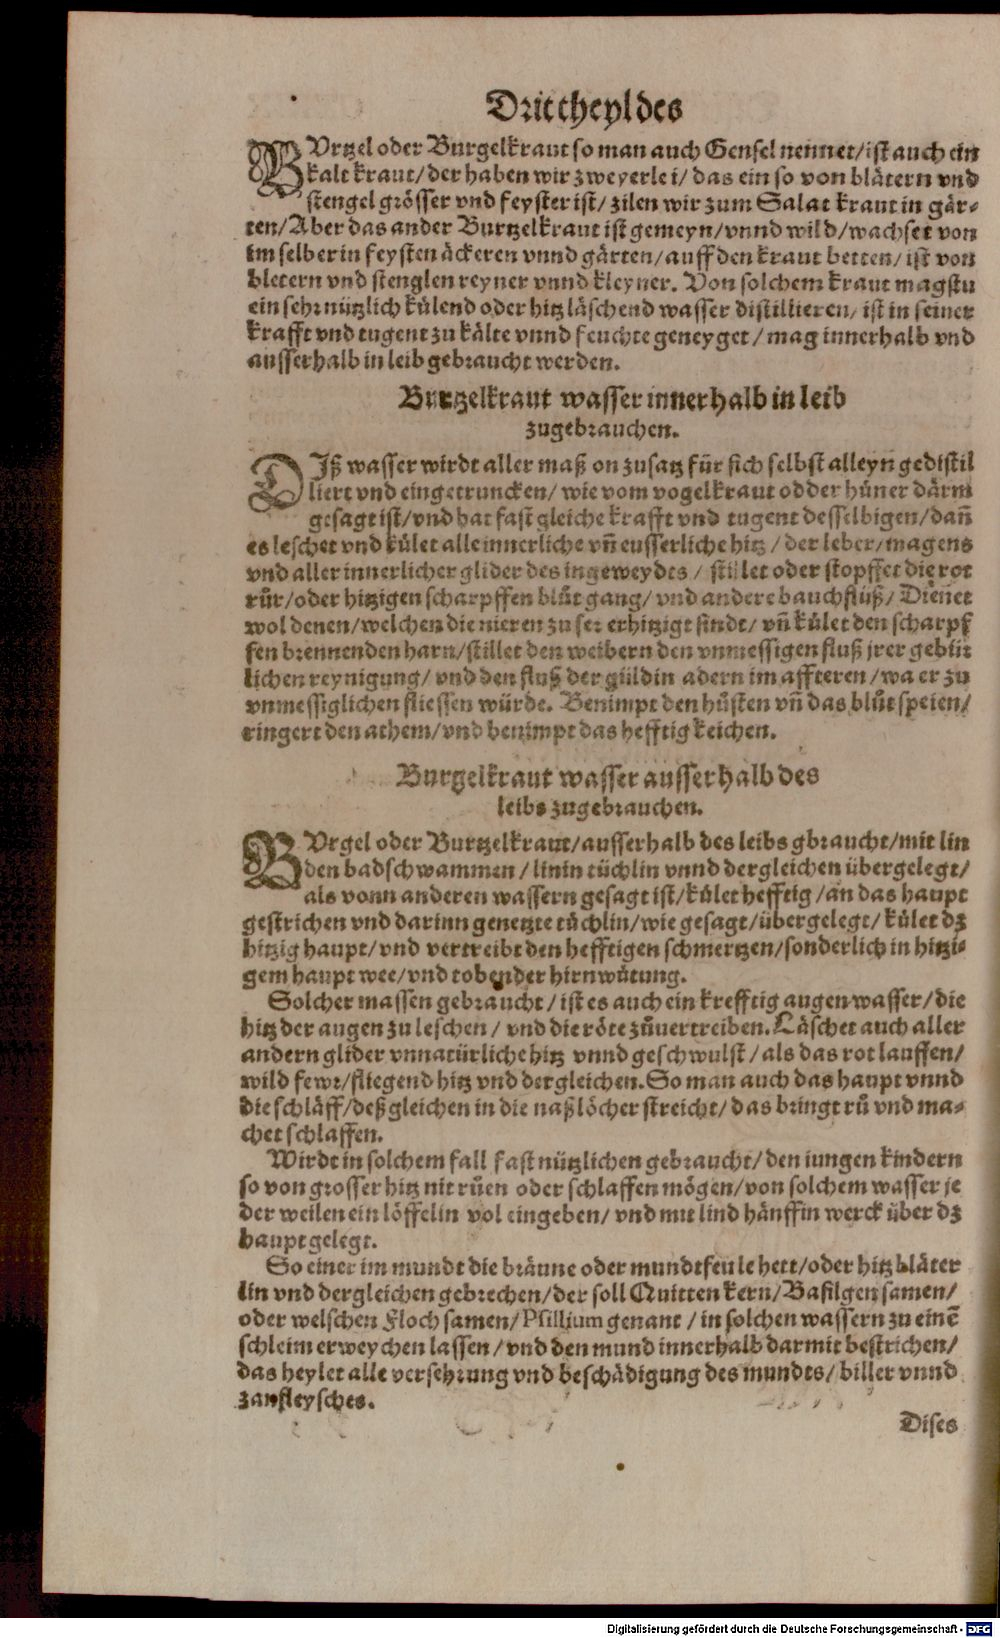 Dritt theyl des
BVrtzel oder Burgelkraut so man auch Gensel nennet/ ist auch ein
kalt kraut/ der haben wir zweyerlei/ das ein so von blätern vnd
stengel grösser vnd feyster ist/ zilen wir zum Salat kraut in gär-
ten/ Aber das ander Burtzelkraut ist gemeyn/ vnnd wild/ wachset von
im selber in feysten äckeren vnnd gärten/ auff den kraut betten/ ist von
bletern vnd stenglen reyner vnnd kleyner. Von solchem kraut magstu
ein sehr nützlich külend oder hitz läschend wasser distillieren/ ist in seiner
krafft vnd tugent zu kälte vnnd feuchte geneyget/ mag innerhalb vnd
ausserhalb in leib gebraucht werden.
Burtzelkraut wasser innerhalb in leib
zugebrauchen.
DIß wasser wirdt aller maß on zusatz für sich selbst alleyn gedistil
liert vnd eingetruncken/ wie vom vogelkraut odder hüner därm
gesagt ist/ vnd hat fast gleiche krafft vnd tugent desselbigen/ dañ
es leschet vnd kület alle innerliche vñ eusserliche hitz/ der leber/ magens
vnd aller innerlicher glider des ingeweydes/ stillet oder stopffet die rot
růr/ oder hitzigen scharpffen blůt gang/ vnd andere bauchflüß/ Dienet
wol denen/ welchen die nieren zu ser erhitzigt sindt/ vñ kület den scharpf
fen brennenden harn/ stillet den weibern den vnmessigen fluß jrer gebür
lichen reynigung/ vnd den fluß der güldin adern im affteren/ wa er zu
vnmessiglichen fliessen würde. Benimpt den hůsten vñ das blůt speien/
ringert den athem/ vnd benimpt das hefftig keichen.
Burgelkraut wasser ausserhalb des
leibs zugebrauchen.
BVrgel oder Burtzelkraut/ ausserhalb des leibs gbraucht/ mit lin
den badschwammen/ linin tüchlin vnnd dergleichen übergelegt/
als vonn anderen wassern gesagt ist/ kület hefftig/ an das haupt
gestrichen vnd darinn genetzte tüchlin/ wie gesagt/ übergelegt/ kület dz
hitzig haupt/ vnd vertreibt den hefftigen schmertzen/ sonderlich in hitzi-
gem haupt wee/ vnd tobender hirnwütung.
Solcher massen gebraucht/ ist es auch ein krefftig augen wasser/ die
hitz der augen zu leschen/ vnd die röte zůuertreiben. Läschet auch aller
andern glider vnnatürliche hitz vnnd geschwulst/ als das rotlauffen/
wild fewr/ fliegend hitz vnd dergleichen. So man auch das haupt vnnd
die schläff/ deßgleichen in die naßlöcher streicht/ das bringt rů vnd ma-
chet schlaffen.
Wirdt in solchem fall fast nützlichen gebraucht/ den iungen kindern
so von grosser hitz nit růen oder schlaffen mögen/ von solchem wasser je
der weilen ein löffelin vol eingeben/ vnd mit lind hänffin werck über dz
haupt gelegt.
So einer im mundt die bräune oder mundtfeule hett/ oder hitz bläter
lin vnd dergleichen gebrechen/ der soll Quitten kern/ Basilgen samen/
oder welschen Floch samen/ Psillium genant/ in solchen wassern zu einē
schleim erweychen lassen/ vnd den mund innerhalb darmit bestrichen/
das heylet alle versehrung vnd beschädigung des mundts/ biller vnnd
zanfleysches.
Dises
Digitalisierung gefördert durch die Deutsche Forschungsgemeinschaft - DFG